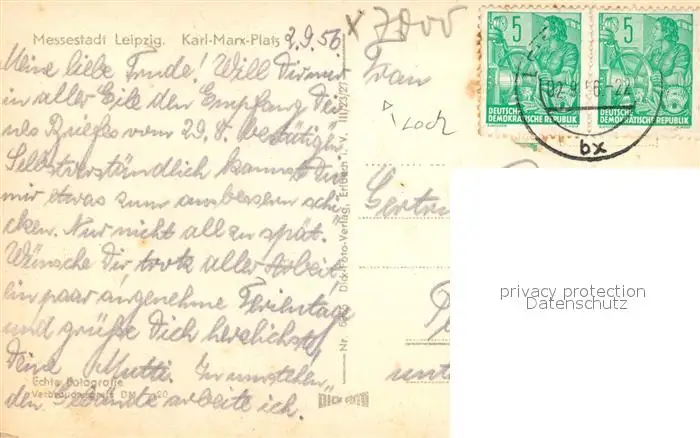 Messestadt Leipzig. Karl-Marx-Platz
2.9.56
Meine liebe Trude! Will Dir nur
in aller Eile den Empfang Dei-
nes Briefes vom 29.8. bestätigen
Selbstverständlich kannst Du
mir etwas zum ausbessern schi-
cken. Nur nicht allzu spät.
Wünsche Dir, trotz aller Arbeit,
ein paar angenehme Ferientage
und grüße Dich herzlichst
Deine Mutti. In umstehen-
den Gebäude arbeite ich.
Echte Fotografie
Verbraucherpreis DM 0,20
Dick-Foto-Verlag, Erlbach i. V. III/23/27
Nr.
x 7000
Frau
Loch
Gertru
unt
5
5
DEUTSCHE
DEMOKRATISCHE REPUBLIK
DEUTSCHE
DEMOKRATISCHE REPUBLIK
bx
privacy protection
Datenschutz